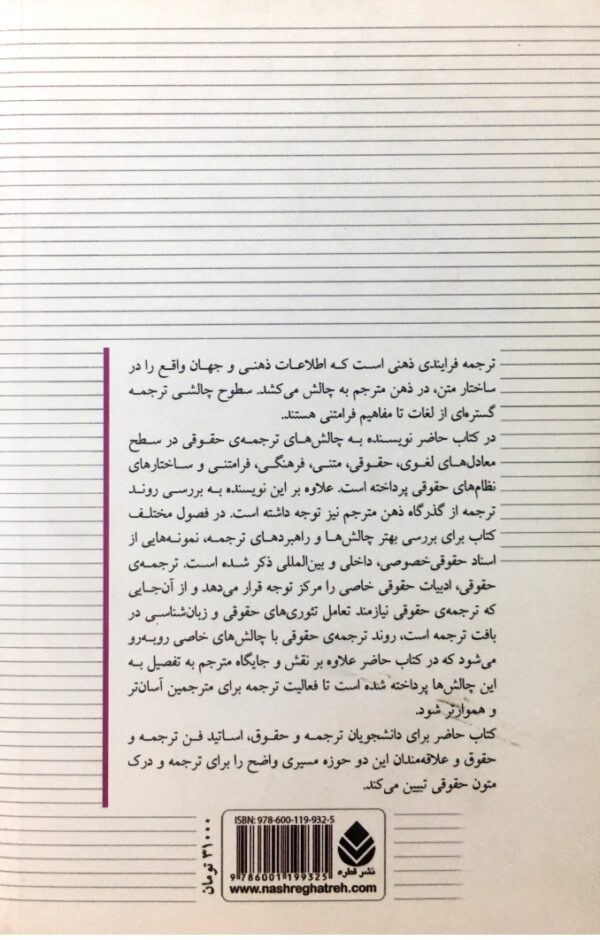 ترجمه فرایندی ذهنی است که اطلاعات ذهنی و جهان واقع را در
ساختار متن، در ذهن مترجم به چالش می‌کشد. سطوح چالشی ترجمه
گستره‌ای از لغات تا مفاهیم فرامتنی هستند.
در کتاب حاضر نویسنده به چالش‌های ترجمه‌ی حقوقی در سطح
معادل‌های لغوی، حقوقی، متنی، فرهنگی، فرامتنی و ساختارهای
نظام‌های حقوقی پرداخته است. علاوه بر این نویسنده به بررسی روند
ترجمه از گذرگاه ذهن مترجم نیز توجه داشته است. در فصول مختلف
کتاب برای بررسی بهتر چالش‌ها و راهبردهای ترجمه، نمونه‌هایی از
اسناد حقوقی‌خصوصی، داخلی و بین‌المللی ذکر شده است. ترجمه‌ی
حقوقی، ادبیات حقوقی خاصی را مرکز توجه قرار می‌دهد و از آن‌جایی
که ترجمه‌ی حقوقی نیازمند تعامل تئوری‌های حقوقی و زبان‌شناسی در
بافت ترجمه است، روند ترجمه‌ی حقوقی با چالش‌های خاصی روبه‌رو
می‌شود که در کتاب حاضر علاوه بر نقش و جایگاه مترجم به تفصیل به
این چالش‌ها پرداخته شده است تا فعالیت ترجمه برای مترجمین آسان‌تر
و هموارتر شود.
کتاب حاضر برای دانشجویان ترجمه و حقوق، اساتید فن ترجمه و
حقوق و علاقه‌مندان این دو حوزه مسیری واضح را برای ترجمه و درک
متون حقوقی تبیین می‌کند.
ISBN: 978-600-119-932-5
9 786001 199325
نشر قطره
www.nashreghatreh.com
۳۱۰۰۰ تومان